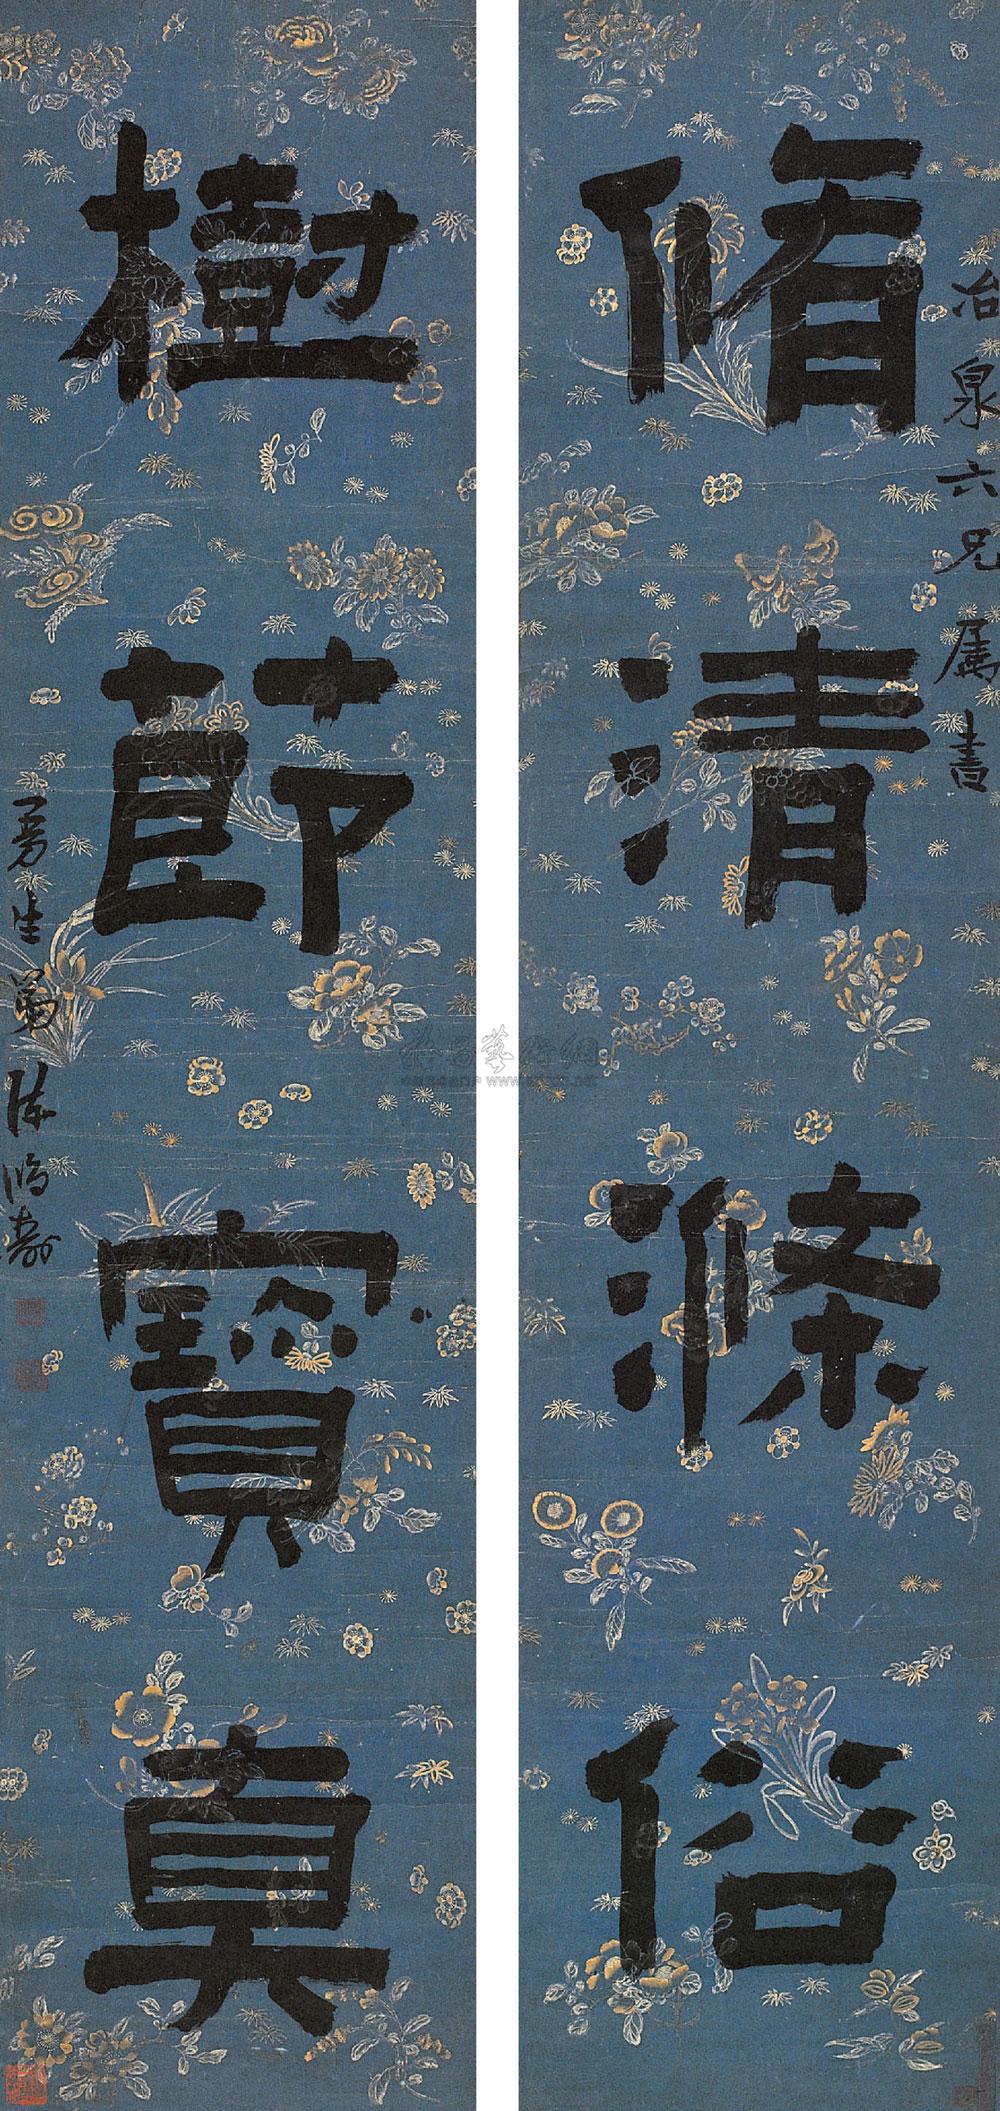 冶泉六兄属書
脩清滌俗
樹節寶真
曼生弟陳鴻壽